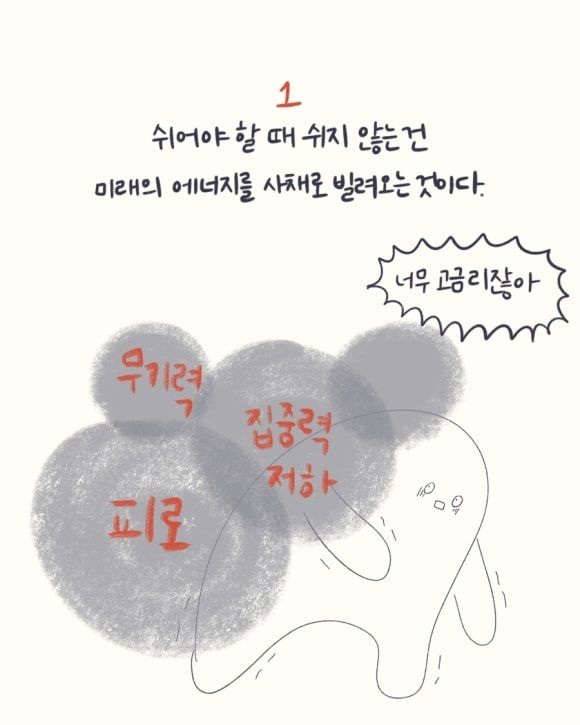 1
쉬어야 할 때 쉬지 않는 건
미래의 에너지를 사채로 빌려오는 것이다.
너무 고금리잖아
무기력
집중력
저하
피로